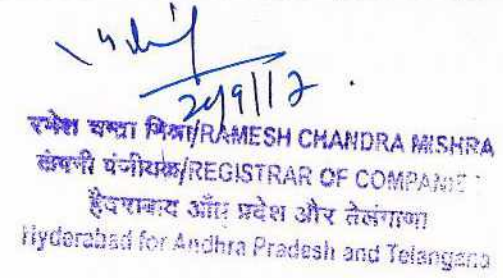 20/9/17.
रमेश चन्द्रा मिश्रा/RAMESH CHANDRA MISHRA
कंपनी पंजीयक/REGISTRAR OF COMPANIES
हैदराबाद आँध्र प्रदेश और तेलंगाणा
Hyderabad for Andhra Pradesh and Telangana